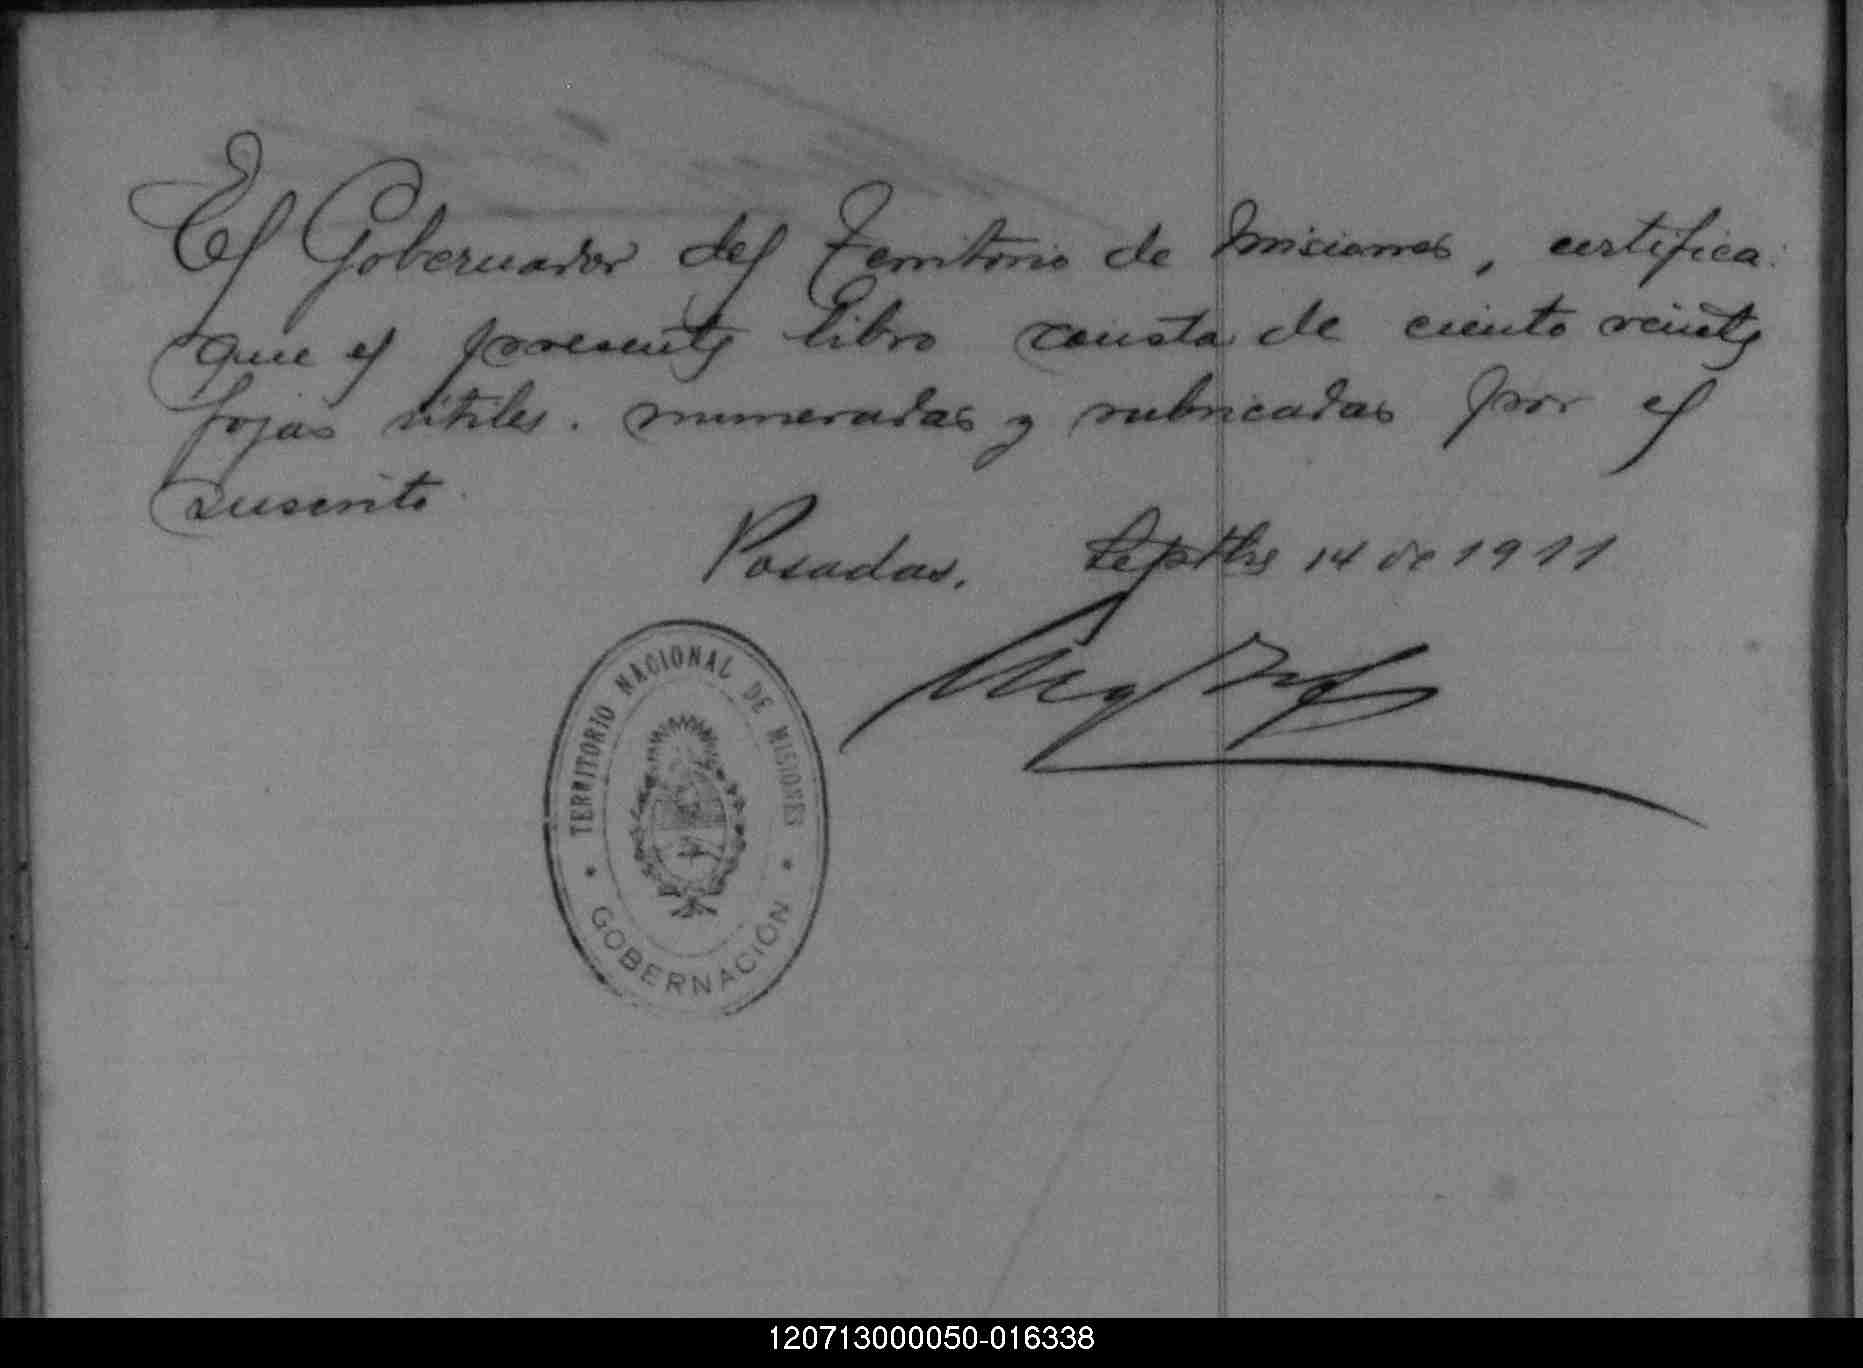 El Gobernador del Territorio de Misiones, certifica:
que el presente libro consta de ciento veinte
fojas útiles. numeradas y rubricadas por el
suscrito.
Posadas, Septbre 14 de 1911
TERRITORIO NACIONAL DE MISIONES
* GOBERNACIÓN *
120713000050-016338